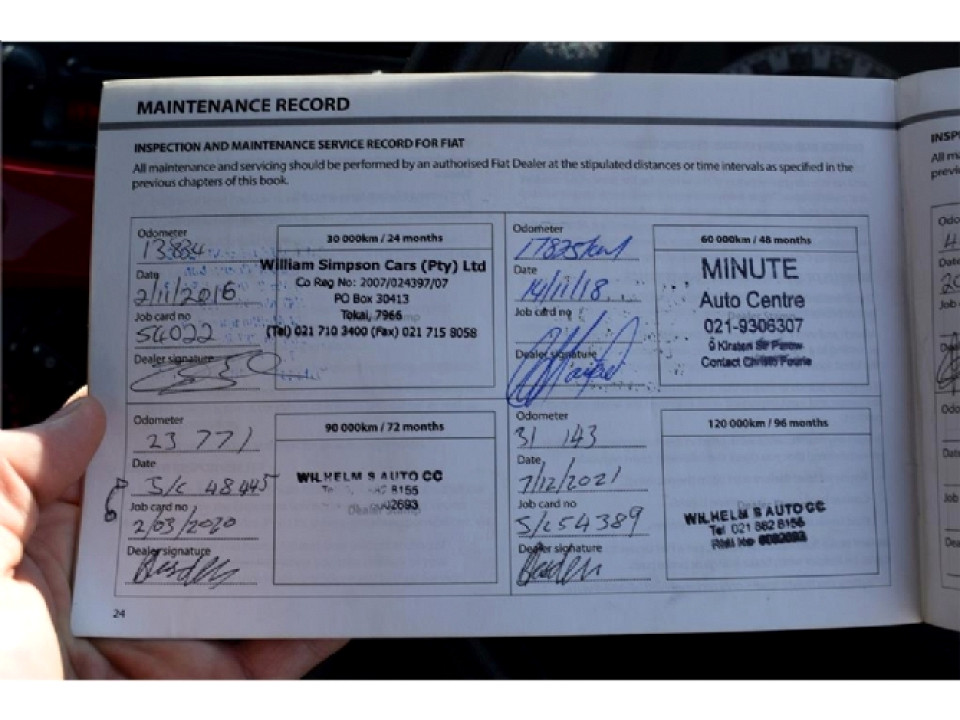 MAINTENANCE RECORD
INSPECTION AND MAINTENANCE SERVICE RECORD FOR FIAT
All maintenance and servicing should be performed by an authorised Fiat Dealer at the stipulated distances or time intervals as specified in the
previous chapters of this book.
Odometer
13884
Date
2/11/2016
Job card no
54022
Dealer signature
30 000km / 24 months
William Simpson Cars (Pty) Ltd
Co Reg No: 2007/024397/07
PO Box 30413
Tokai, 7966
(Tel) 021 710 3400 (Fax) 021 715 8058
Odometer
17825km
Date
14/11/18
Job card no
Dealer signature
60 000km / 48 months
MINUTE
Auto Centre
021-9306307
6 Kirsten Str Parow
Contact Christo Fourie
Odometer
23 771
Date
S/C 48445
Job card no
2/03/2020
Dealer signature
90 000km / 72 months
WILHELM S AUTO CC
8156
Dealer Stamp
Odometer
31 143
Date
7/12/2021
Job card no
S/C 54389
Dealer signature
120 000km / 96 months
WILHELM S AUTO CC
Tel 021 862 8156
24
INSP
All ma
previ
Odo
4
Date
20
Job
Dea
Odo
Date
Job
Dea